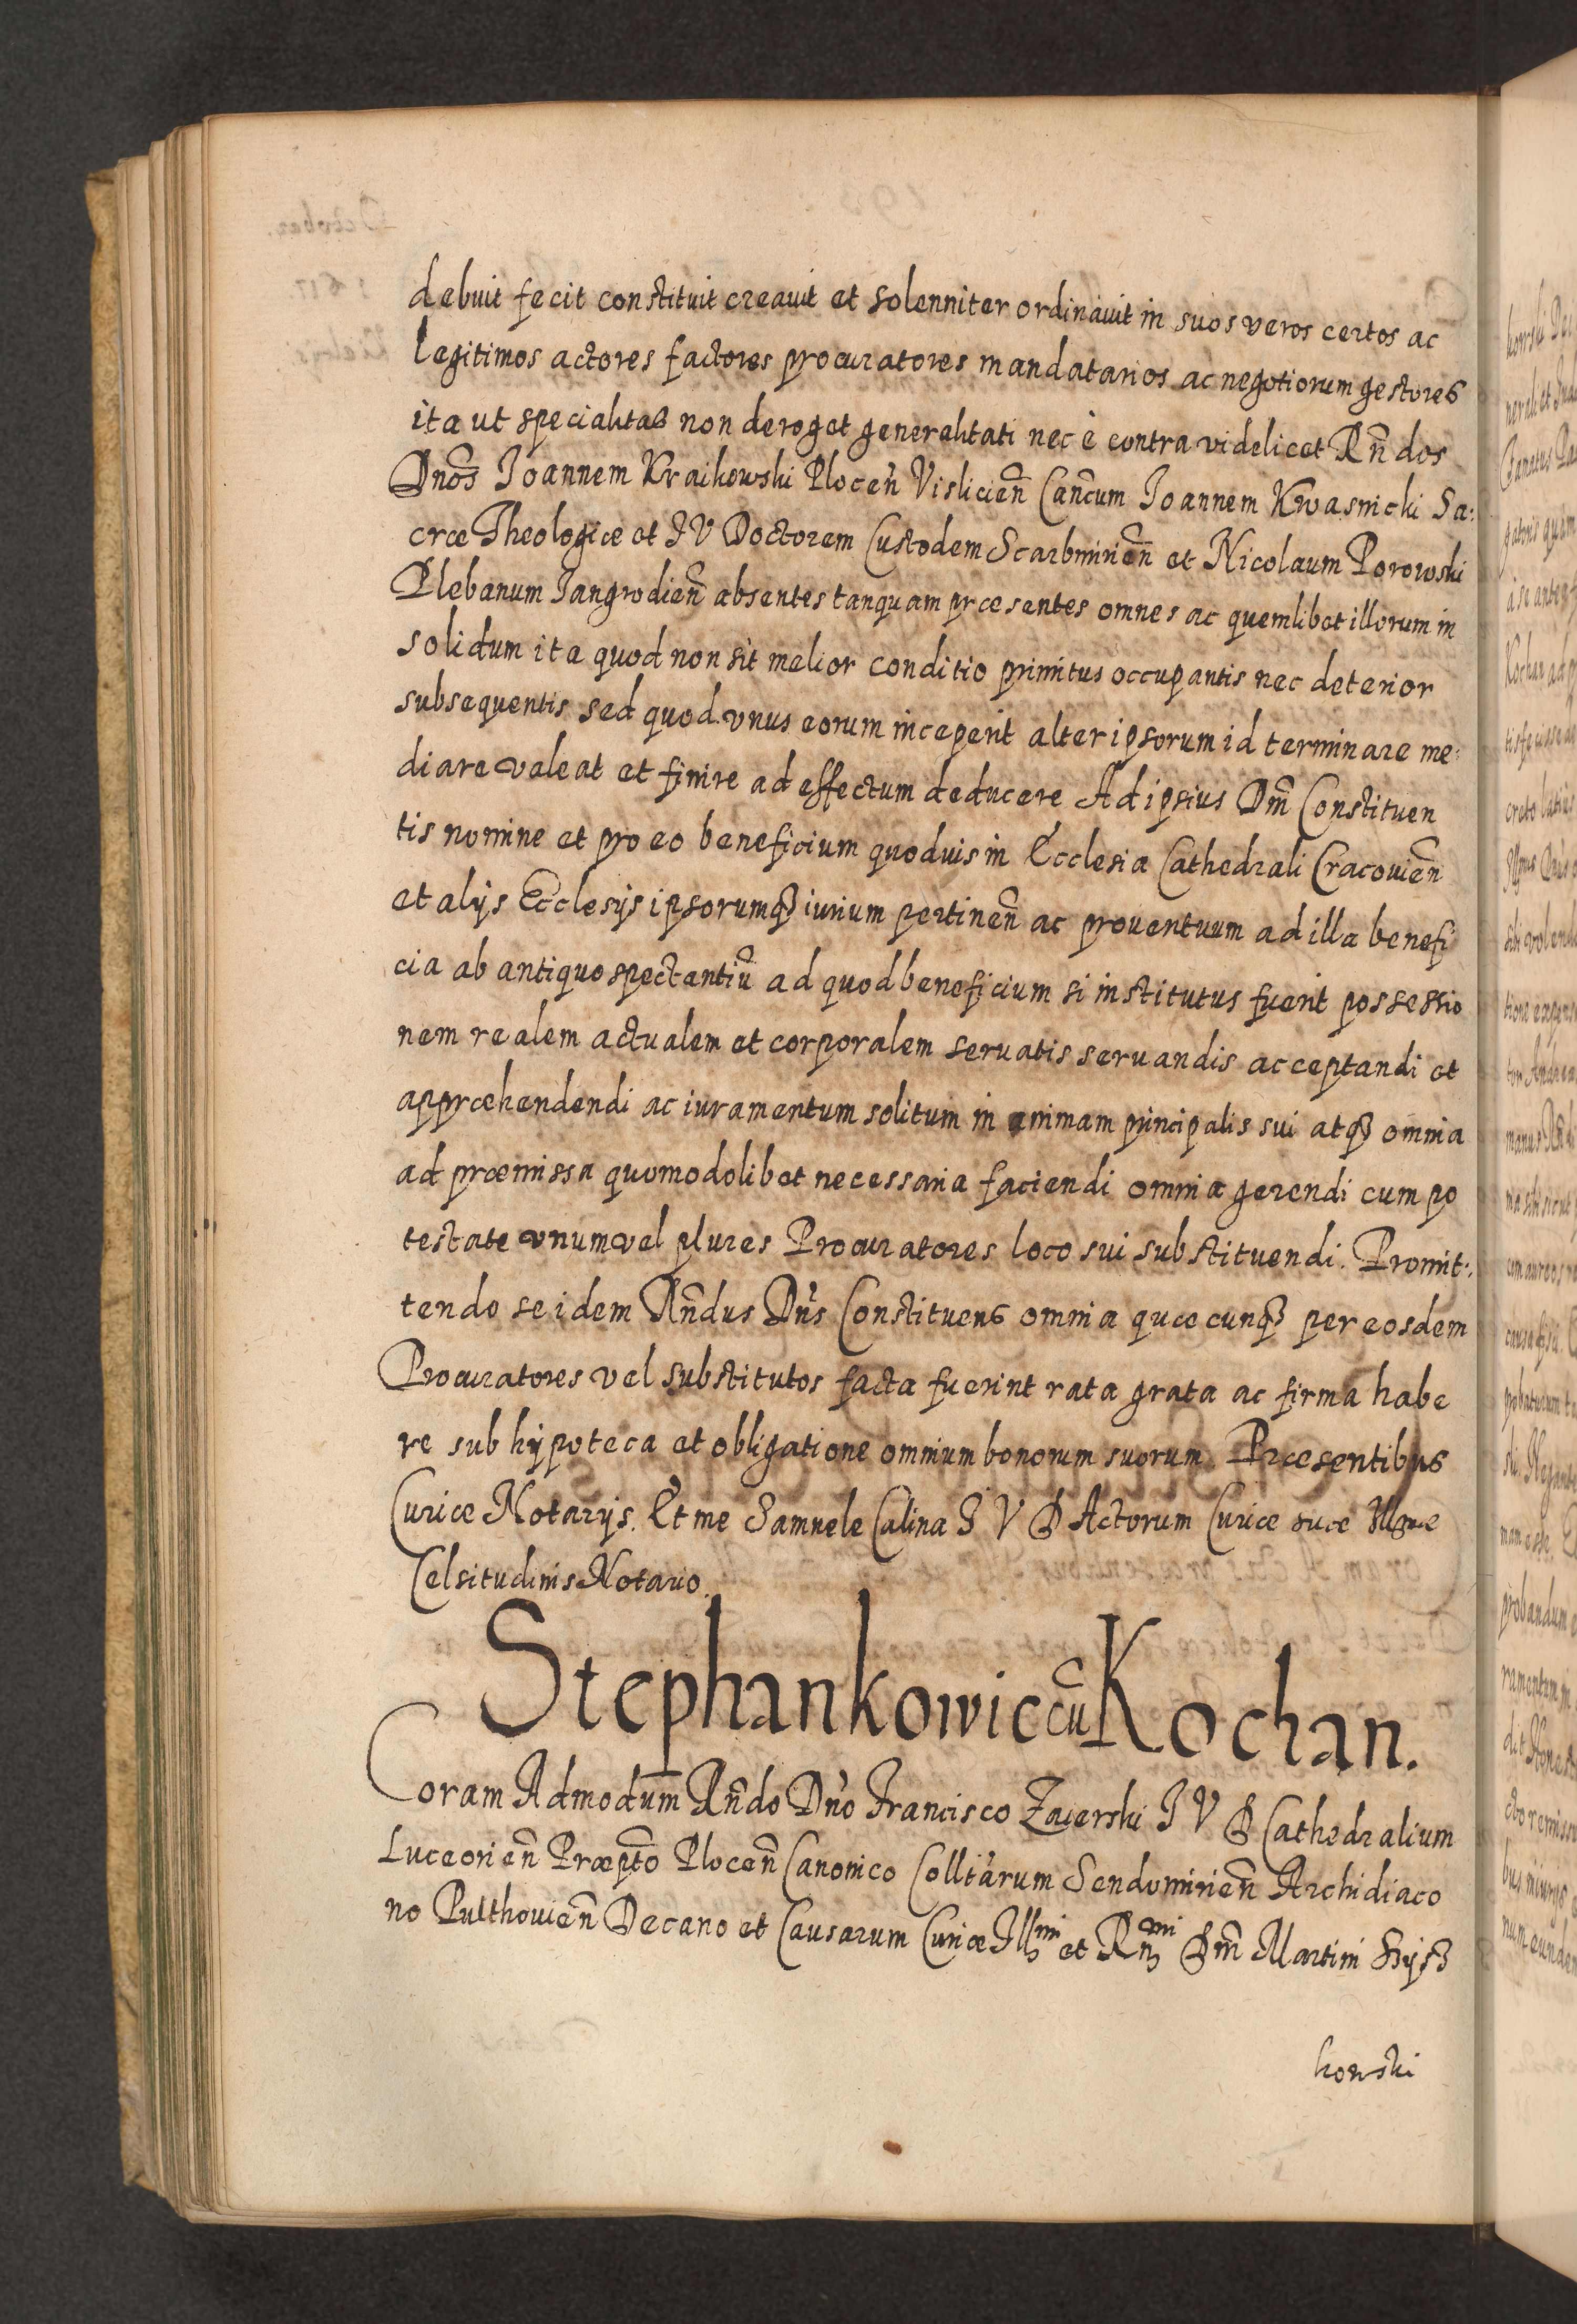 debuit fecit constituit creauit et solenniter ordinauit in suos veros certos ac
legitimos actores factores procuratores mandatarios ac negotiorum gestores
ita ut specialitas non deroget generalitati nec è contra videlicet Rñdos
Dnõs Ioannem Kraikowski Ploceñ Vislicieñ Cañcum Ioannem Kwasnicki Sa:
cræ Theologiæ et I V Doctorem Custodem Scarbimirieñ et Nicolaum Porowski
Plebanum Iangrodieñ absentes tanquam præsentes omnes ac quemlibet illorum in
solidum ita quod non sit melior conditio primitus occupantis nec deterior
subsequentis sed quod vnus eorum inceperit alter ipsorum id terminare me:
diare valeat et finire ad effectum deducere Ad ipsius Dm̃ Constituen
tis nomine et pro eo beneficium quoduis in Ecclesia Cathedrali Cracouieñ
et alijs Ecclesijs ipsorumqȝ iurium pertineñ ac prouentuum ad illa benefi
cia ab antiquo spectantiũ ad quod beneficium si institutus fuerit possessio
nem realem actualem et corporalem seruatis seruandis acceptandi et
appræhendendi ac iuramentum solitum in animam principalis sui atqȝ omnia
ad præmissa quomodolibet necessaria faciendi omnia gerendi cum po
testate vnum vel plures Procuratores loco sui substituendi. Promit:
tendo se idem Rñdus Dñs Constituens omnia quæcunqȝ per eosdem
Procuratores vel substitutos facta fuerint rata grata ac firma habe
re sub hypoteca et obligatione omnium bonorum suorum Præsentibus
Curiæ Notarijs. Et me Samuele Calina I V D Actorum Curiæ suæ Illmæ
Celsitudinis Notario.
Stephankowic cũ Kochan.
Coram Admodum Rñdo Dño Francisco Zaierski I V D Cathedralium
Luceorieñ Præpto Ploceñ Canonico Colltarum Sendomirieñ Archidiaco
no Pulthouieñ Decano et Causarum Curiæ Illmi et Rñmi Dm̃ Martini Szysz
kowski